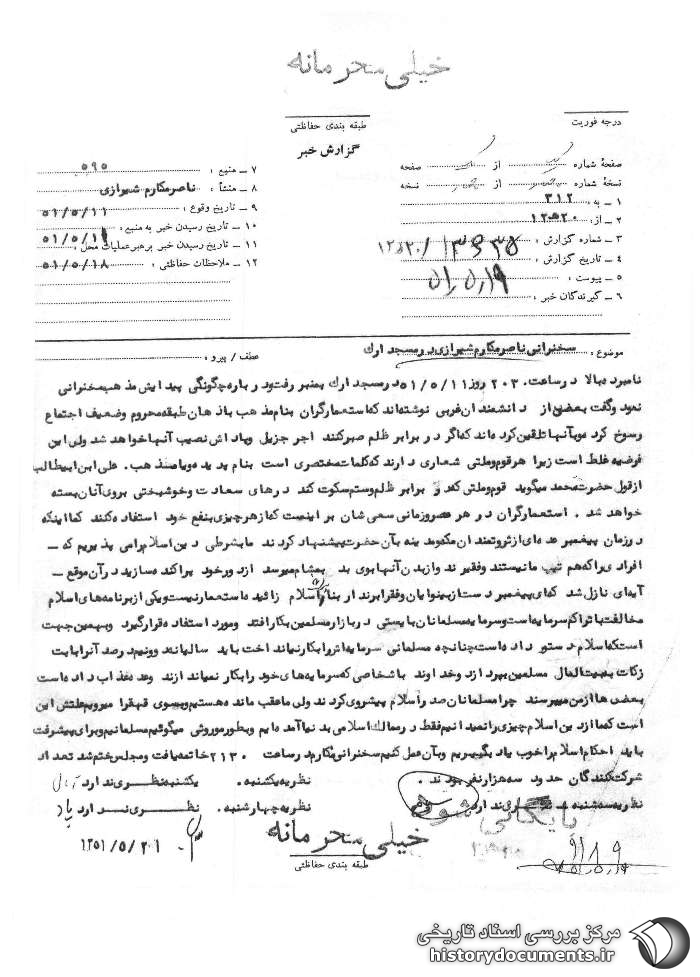 خیلی محرمانه
درجه فوریت
طبقه بندی حفاظتی
گزارش خبر
صفحهٔ شماره از صفحه
نسخهٔ شماره از نسخه
۱ ــ به : ۳۱۲
۲ ــ از : ۱۲ه۲۰
۳ ــ شماره گزارش :
۴ ــ تاریخ گزارش :
۵ ــ پیوست :
۶ ــ گیرندگان خبر :
۷ ــ منبع : ۵۹۵
۸ ــ منشأ : ناصر مکارم شیرازی
۹ ــ تاریخ وقوع : ۵۱/۵/۱۱
۱۰ ــ تاریخ رسیدن خبر به منبع :
۱۱ ــ تاریخ رسیدن خبر برهبر عملیات محل :
۱۲ ــ ملاحظات حفاظتی : ۵۱/۵/۱۸
موضوع : سخنرانی ناصر مکارم شیرازی در مسجد ارك
عطف / پیرو :
نامبرده بالا در ساعت ۲۰۳۰ روز ۵۱/۵/۱۱ در مسجد ارك بمنبر رفت و در باره چگونگی پیدایش مذهب سخنرانی
نمود و گفت بعضی از دانشمندان غربی نوشته‌اند که استعمارگران بنام مذهب با ذهان طبقه محروم وضعیف اجتماع
رسوخ کرده و بآنها تلقین کرده‌اند که اگر در برابر ظلم صبر کنند اجر جزیل و پاداش نصیب آنها خواهد شد ولی این
فرضیه غلط است زیرا هر قوم و ملتی شعاری دارند که کلمات مختصری است بنام پدیده و یا مذهب. علی ابن ابیطالب
از قول حضرت محمد میگوید قوم و ملتی که در برابر ظلم و ستم سکوت کند درهای سعادت و خوشبختی بروی آنان بسته
خواهد شد . استعمارگران در هر عصر و زمانی سعی شان بر اینست که از هر چیزی بنفع خود استفاده کنند کما اینکه
در زمان پیغمبر عده‌ای از ثروتمندان مکه و مدینه بآن حضرت پیشنهاد کردند ما بشرطی دین اسلام را می پذیریم که ــ
افرادی را که هم تیپ ما نیستند و فقیرند و از بدن آنها بوی بد بمشام میرسد از دور خود پراکنده سازید در آن موقع ــ
آیه‌ای نازل شد که‌ای پیغمبر دست از بینوایان و فقرا برندار بنابر اسلام زائیده استعمار نیست و یکی از برنامه‌های اسلام
مخالفت با تراکم سرمایه است و سرمایه مسلمانان بایستی در بازار مسلمین بکار افتد و مورد استفاده قرار گیرد و بهمین جهت
است که اسلام دستور داده است چنانچه مسلمانی سرمایه‌اش را بکار نیانداخت باید سالیانه دو نیم درصد آنرا بابت
زکات به بیت‌المال مسلمین بپردازد و خداوند با شخاصی که سرمایه‌های خود را بکار نمیاندازند وعده عذاب داده است
بعضی‌ها از من میپرسند چرا مسلمانان صدر اسلام پیشروی کردند ولی ما عقب مانده هستیم و بسوی قهقرا میرویم علتش این
است که ما از دین اسلام چیزی را نمیدانیم فقط در ممالك اسلامی بدنیا آمده‌ایم و بطور موروثی میگوئیم مسلمانیم و برای پیشرفت
باید احکام اسلام را خوب یاد بگیریم و بآن عمل کنیم سخنرانی مکارم در ساعت ۲۱۳۰ خاتمه یافت و مجلس ختم شد تعداد
شرکت کنندگان حدود سه هزار نفر بودند .
نظریه یکشنبه . یکشنبه نظری ندارد
نظریه سه‌شنبه . نظری ندارد
نظریه چهارشنبه . نظری ندارد
بایگانی شود
خیلی محرمانه
طبقه بندی حفاظتی
مرکز بررسی اسناد تاریخی
historydocuments.ir